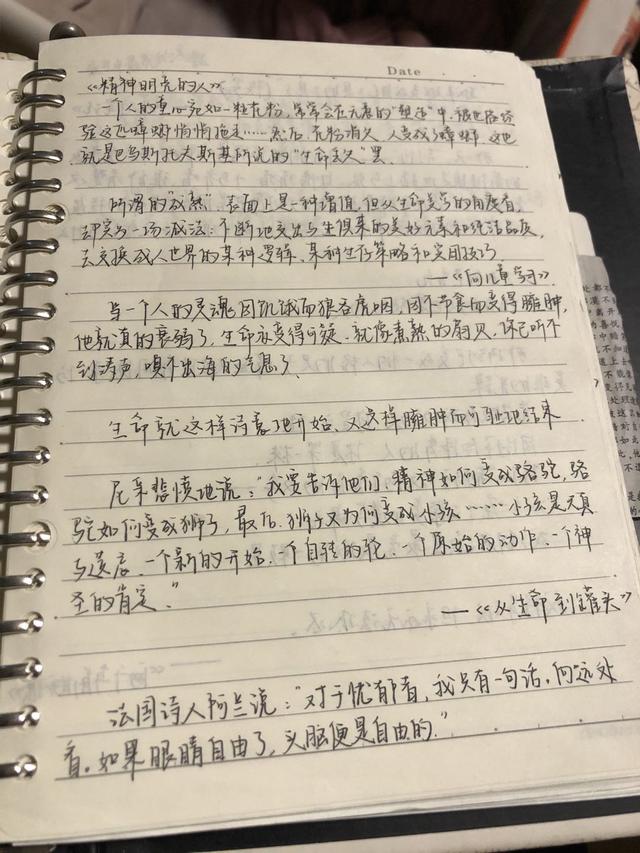 Date
《精神明亮的人》
一个人的童心宛如一粒花粉，常常会在无意的"塑造"中，被世俗经
验这匹蟑螂悄悄拖走……然后，花粉消失，人变成了蟑螂。这也
就是巴乌斯托夫斯基所说的"生命丢失"罢
所谓的"成熟"，表面上是一种增值，但从生命美学的角度看，
却实为一场减法：不断地交出与生俱来的美好元素和纯洁品质，
去交换成人世界的某种逻辑、某种生存策略和实用技巧
——《向儿童学习》
当一个人的灵魂因饥饿而狼吞虎咽，因不节食而变得臃肿，
他就真的衰弱了，生命亦变得可疑。就像煮熟的扇贝，你已听不
到涛声，嗅不出海的气息了。
生命就这样诗意地开始，又这样臃肿而可耻地结束
尼采悲愤地说："我要告诉他们，精神如何变成骆驼，骆
驼如何变成狮子，最后，狮子又为何变成小孩……小孩是天真
与遗忘，一个新的开始，一个自转的轮，一个原始的动作，一个神
圣的肯定。"
——《从生命到罐头》
法国诗人阿兰说："对于忧郁者，我只有一句话，向远处
看。如果眼睛自由了，头脑便是自由的."